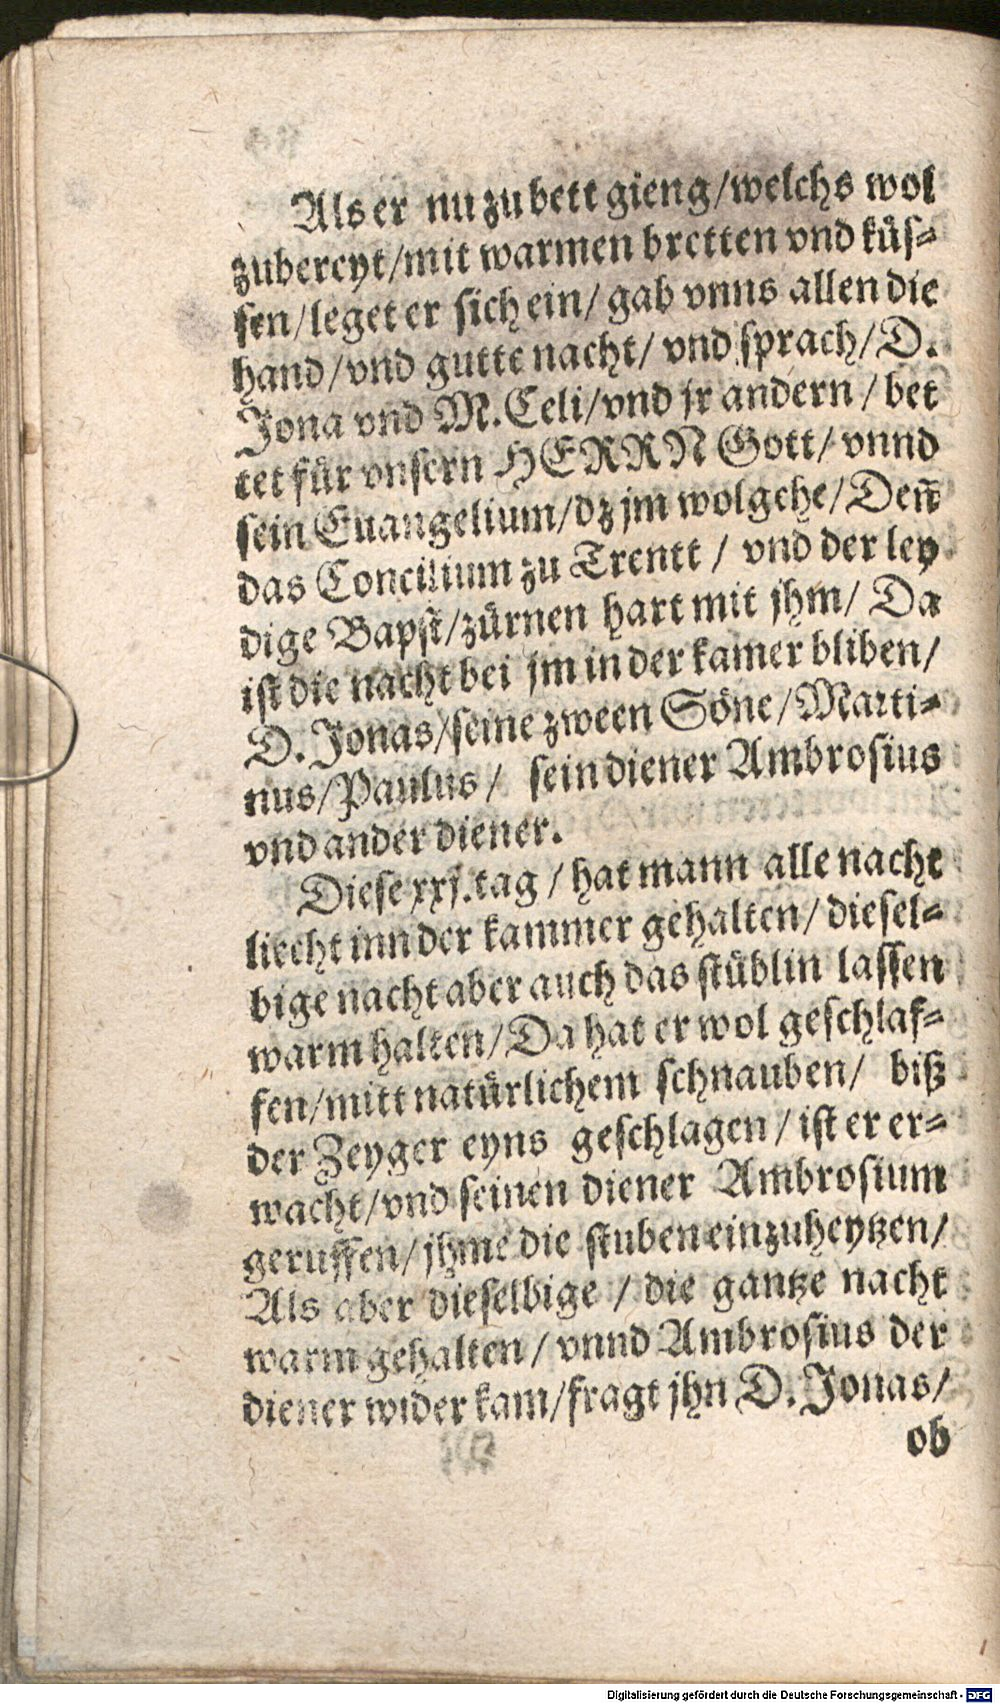 Als er nu zu bett gieng/welchs wol
zubereyt/mit warmen bretten vnd küs-
sen/leget er sich ein/ gab vnns allen die
hand/vnd gutte nacht/ vnd sprach/D.
Jona vnd M.Celi/vnd jr andern / bet
tet für vnsern HERRN Gott/ vnnd
sein Euangelium/dz jm wolgehe/Deñ
das Concilium zu Trentt / vnd der ley
dige Bapst/zürnen hart mit jhm/ Da
ist die nacht bei jm in der kamer bliben/
D. Jonas/seine zween Söne/Marti-
nus/Paulus / sein diener Ambrosius
vnd ander diener.
Diese xxj.tag / hat mann alle nacht
liecht inn der kammer gehalten/ diesel-
bige nacht aber auch das stüblin lassen
warm halten/Da hat er wol geschlaf-
fen/mitt natürlichem schnauben/ biß
der Zeyger eyns geschlagen / ist er er-
wacht/vnd seinen diener Ambrosium
geruffen/jhme die stuben einzuheytzen/
Als aber dieselbige / die gantze nacht
warm gehalten / vnnd Ambrosius der
diener wider kam/fragt jhn D. Jonas/
ob
Digitalisierung gefördert durch die Deutsche Forschungsgemeinschaft - DFG